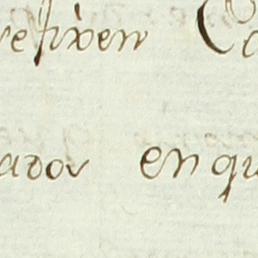 refixen C
ados en qu